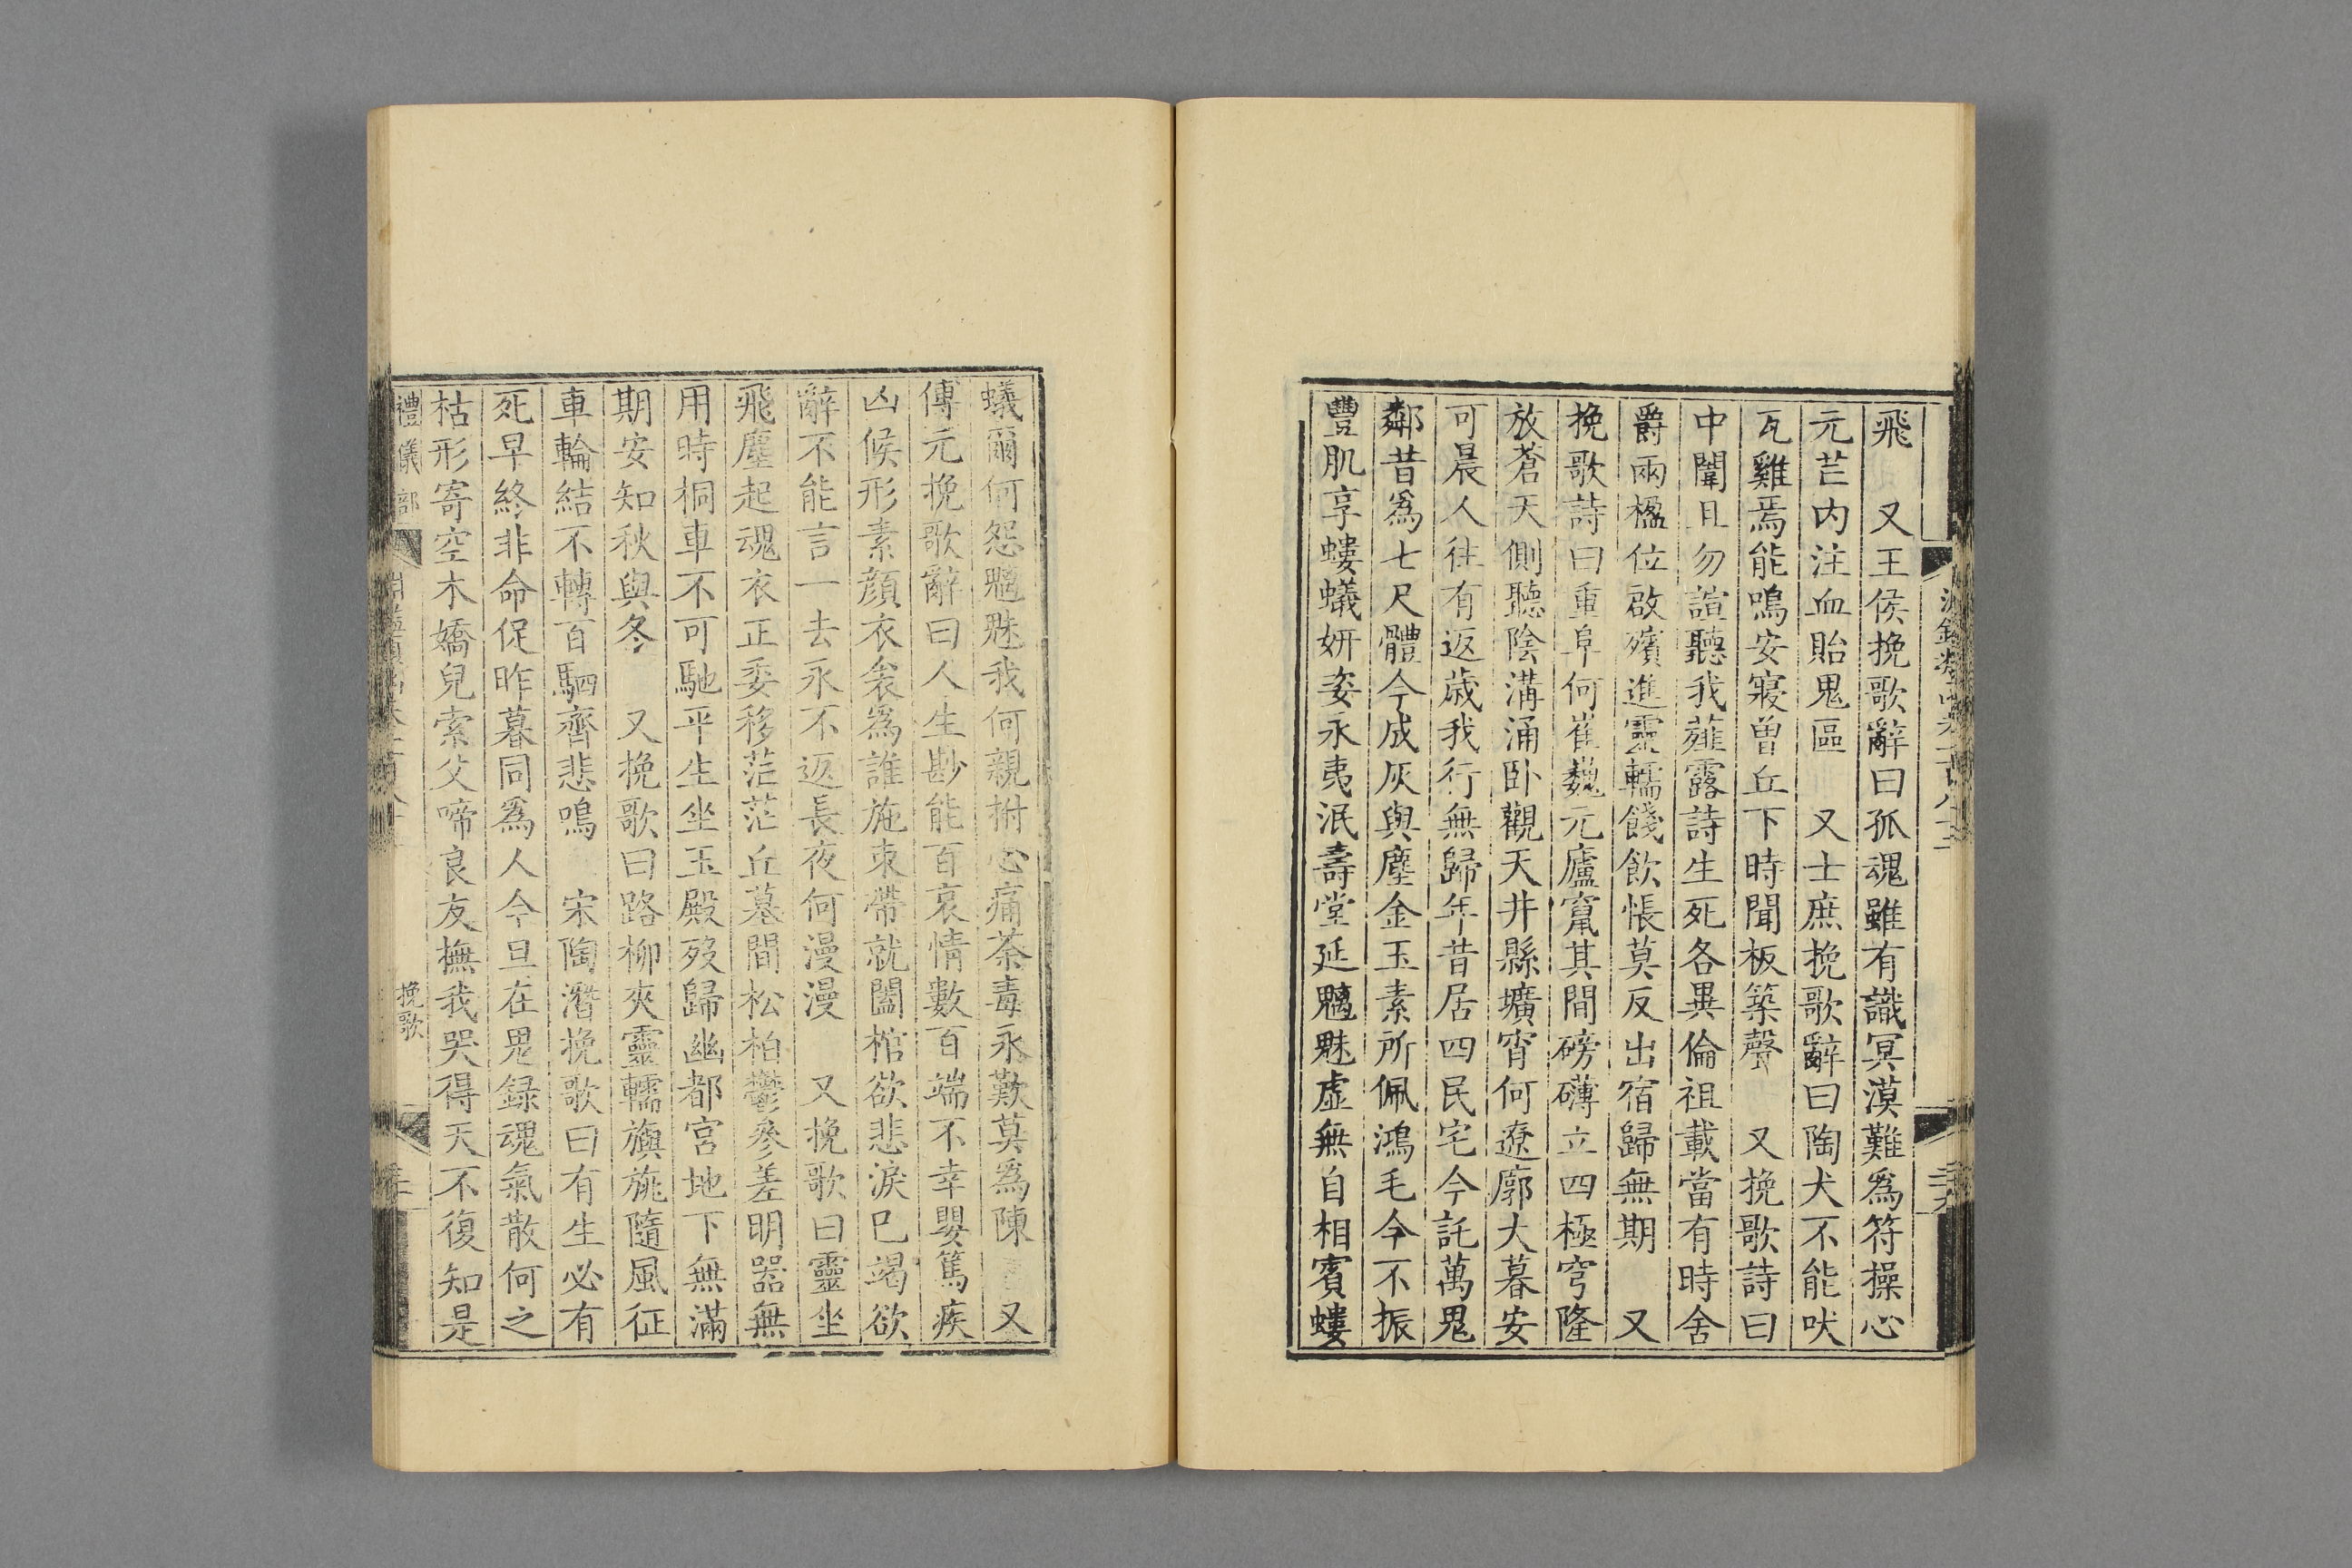 飛 又王侯挽歌辭曰孤魂雖有識冥漠難爲符操心
元芒内注血貽鬼區 又士庶挽歌辭曰陶犬不能吠
瓦雞焉能鳴安寢曽丘下時聞板築聲 又挽歌詩曰
中闈且勿諠聽我薤露詩生死各異倫祖載當有時舍
爵兩楹位啟殯進靈轜餞飲悵莫反出宿歸無期 又
挽歌詩曰重阜何崔巍元廬竁其間磅礴立四極穹隆
放蒼天側聽陰溝涌卧觀天井縣壙宵何遼廓大暮安
可晨人往有返歳我行無歸年昔居四民宅今託萬鬼
鄰昔爲七尺體今成灰與塵金玉素所佩鴻毛今不振
豐肌享螻蟻妍姿永夷泯壽堂延魑魅虛無自相賓螻
蟻爾何怨魑魅我何親拊心痛荼毒永歎莫爲陳 又
傅元挽歌辭曰人生尠能百哀情數百端不幸嬰篤疾
凶候形素顔衣衾爲誰施束帶就闔棺欲悲淚已竭欲
辭不能言一去永不返長夜何漫漫 又挽歌曰靈坐
飛塵起魂衣正委移茫茫丘墓間松柏鬱參差明器無
用時桐車不可馳平生坐玉殿歿歸幽都宮地下無滿
期安知秋與冬 又挽歌曰路柳夾靈轜旟旐隨風征
車輪結不轉百駟齊悲鳴 宋陶潛挽歌曰有生必有
死早終非命促昨暮同爲人今旦在鬼録魂氣散何之
枯形寄空木嬌兒索父啼良友撫我哭得天不復知是
禮儀部
挽歌